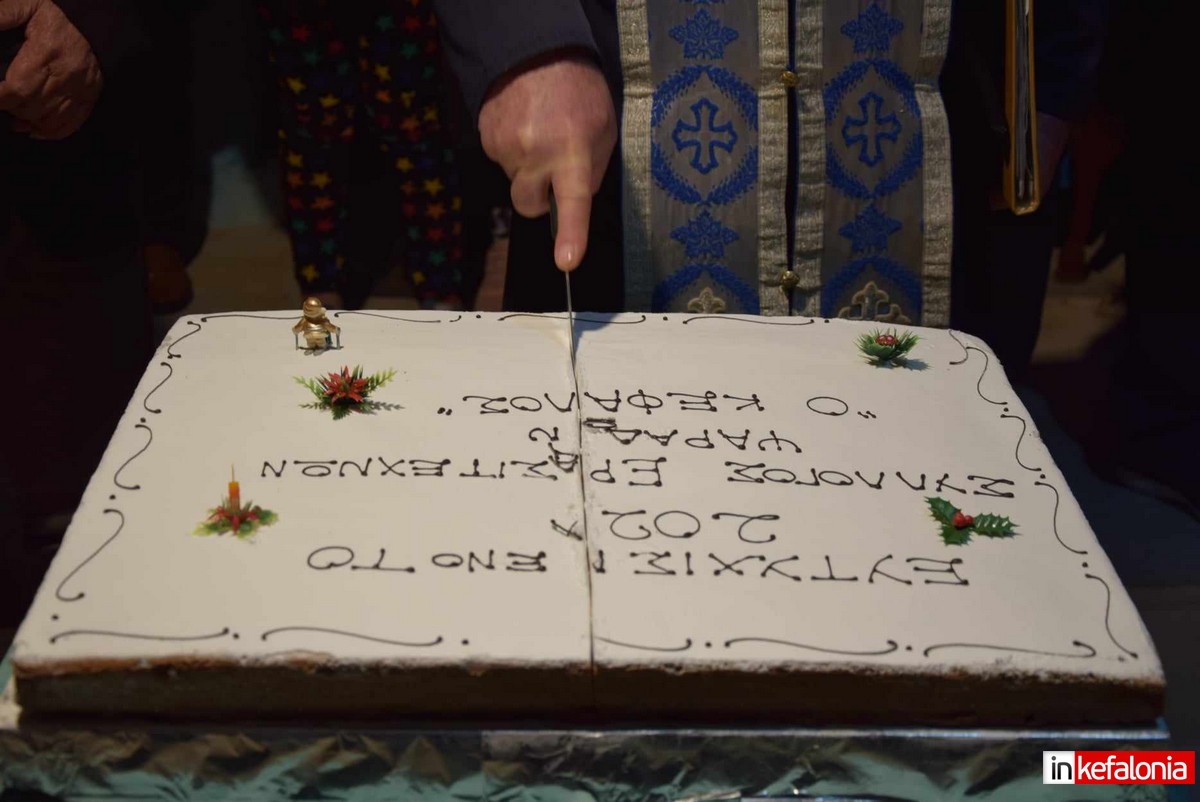 ΕΥΤΥΧΙΣΜΕΝΟ ΤΟ
2024
ΣΥΛΛΟΓΟΣ ΕΡΑΣΙΤΕΧΝΩΝ
"Ο ΚΕΦΑΛΟΣ"
inkefalonia